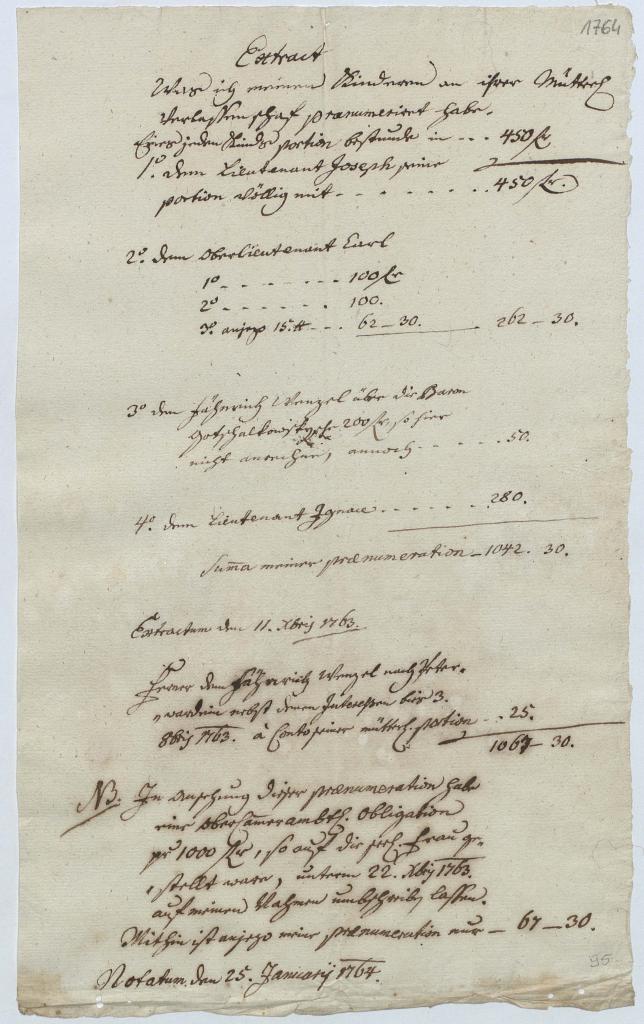 1764
Extract
Was ich meinen Kinderen an ihrer Mütterl
Verlassenschaf prænumeriret habe.
jeden Kinds portion bestunde in - - - 450 fr
1º. dem Lieutenant Joseph seine
portion völlig mit - - - - - - - - 450 fr.
2º. dem Oberlieutenant Carl
1º - - - - - - - 100 fr
2º - - - - - - . 100.
3º. anjezo 15. - - - 62 - 30. . 262 - 30.
3º dem Fähnrich Wenzel über die Baron
Gotschalkowskysche 200 fr, so hier
nicht , annoch - - - - - - 50.
4º. dem Lieutenant Ignace - - - - - - . 280.
Summa meiner prænumeration - 1042. 30.
Extractum den 11. Xbris 1763.
Ferner dem Fähnrich Wenzel nach Peter-
wardein nebst denen Interessen bis 3.
8bris 1763. à Conto seiner mütterl. portion - . 25.
1067 - 30.
NB. In ansehung dieser prænumeration habe
eine Obercamerambtl. Obligation
pr 1000 fr, so auf die seel. Frau ge-
stellt ware, unterm 22. Xbris 1763.
auf meinen Nahmen umbschreiben lassen.
Mithin ist anjezo meine prænumeration nur - 67 - 30.
Notatum den 25. Januarij 1764.
95